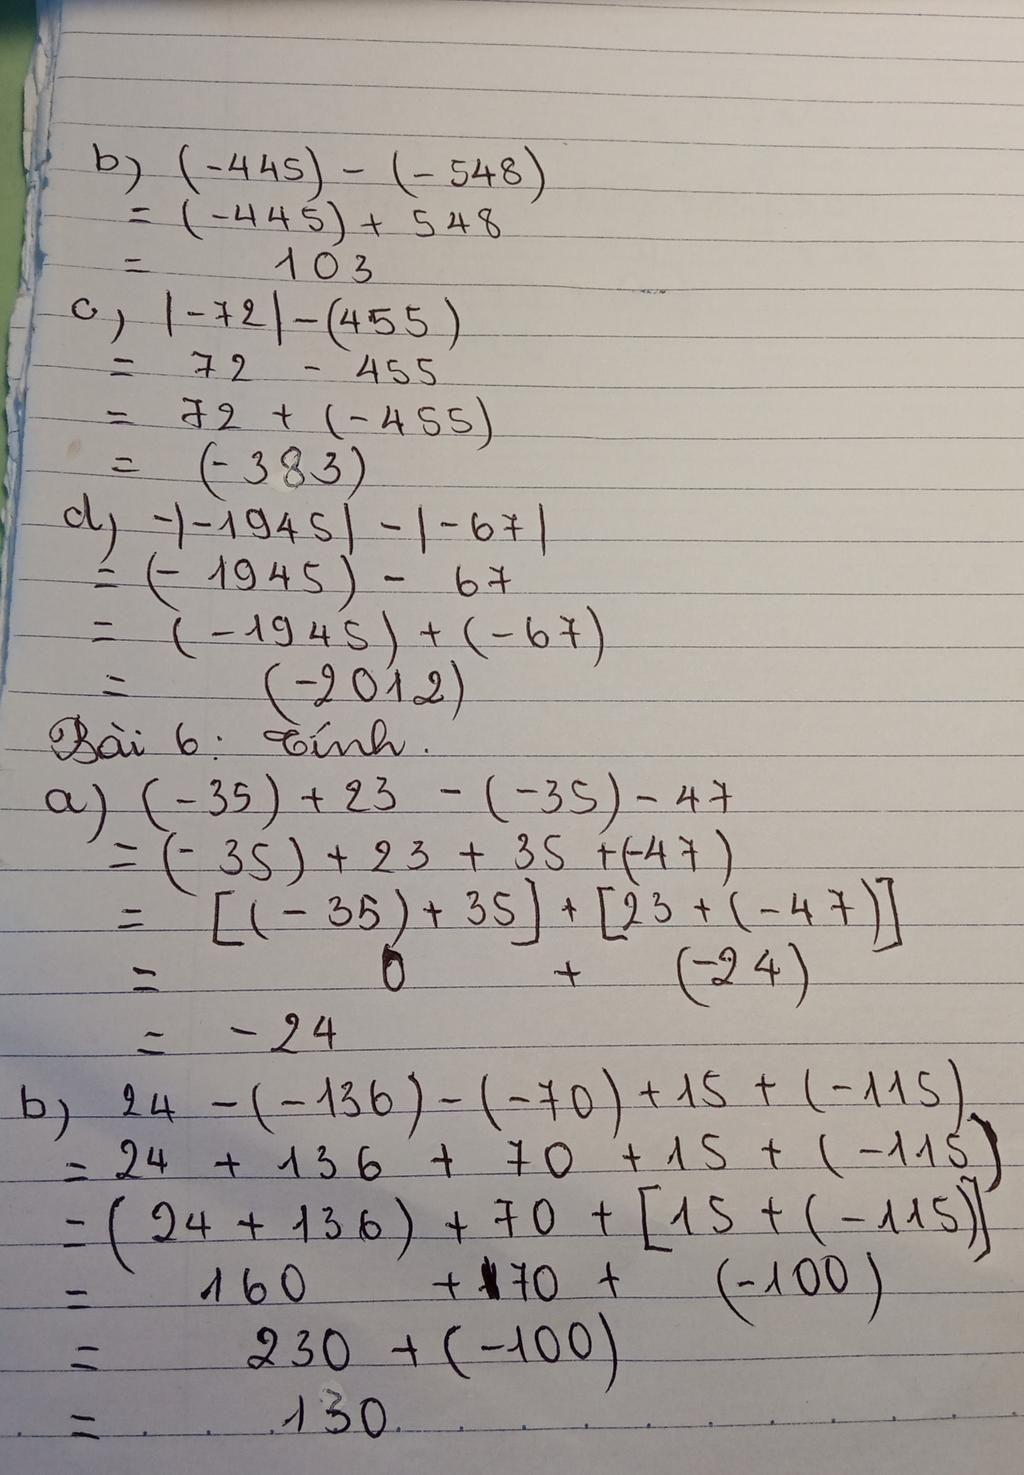 b) (-445) - (-548)
= (-445) + 548
= 103
c) |-72| - (455)
= 72 - 455
= 72 + (-455)
= (-383)
d) -|-1945| - |-67|
= (-1945) - 67
= (-1945) + (-67)
= (-2012)
Bài 6: Tính.
a) (-35) + 23 - (-35) - 47
= (-35) + 23 + 35 + (-47)
= [(-35) + 35] + [23 + (-47)]
= 0 + (-24)
= -24
b) 24 - (-136) - (-70) + 15 + (-115)
= 24 + 136 + 70 + 15 + (-115)
= (24 + 136) + 70 + [15 + (-115)]
= 160 + 70 + (-100)
= 230 + (-100)
= 130